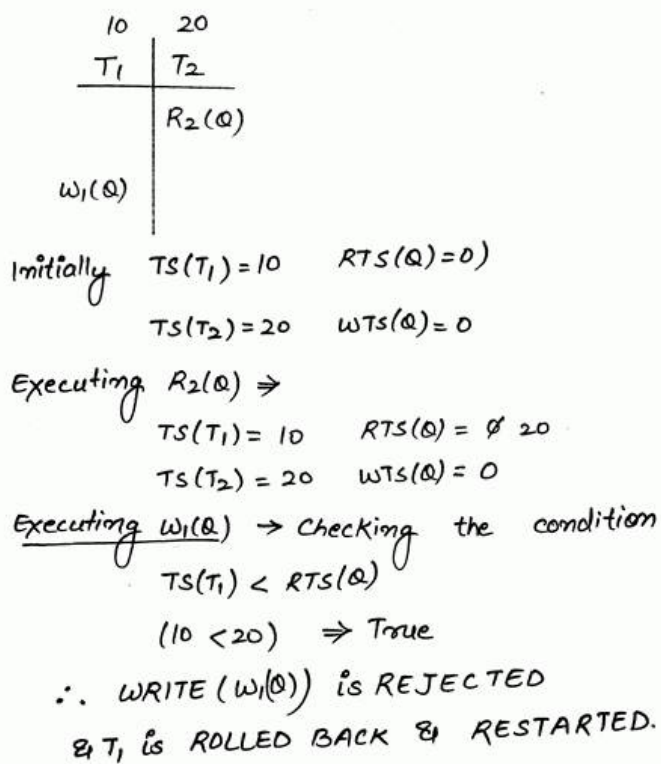 10 20
T1 T2
R2(Q)
W1(Q)
Initially TS(T1) = 10 RTS(Q) = 0)
TS(T2) = 20 WTS(Q) = 0
Executing R2(Q) ⇒
TS(T1) = 10 RTS(Q) = 0̸ 20
TS(T2) = 20 WTS(Q) = 0
Executing W1(Q) → Checking the condition
TS(T1) < RTS(Q)
(10 < 20) ⇒ True
∴ WRITE (W1(Q)) is REJECTED
& T1 is ROLLED BACK & RESTARTED.